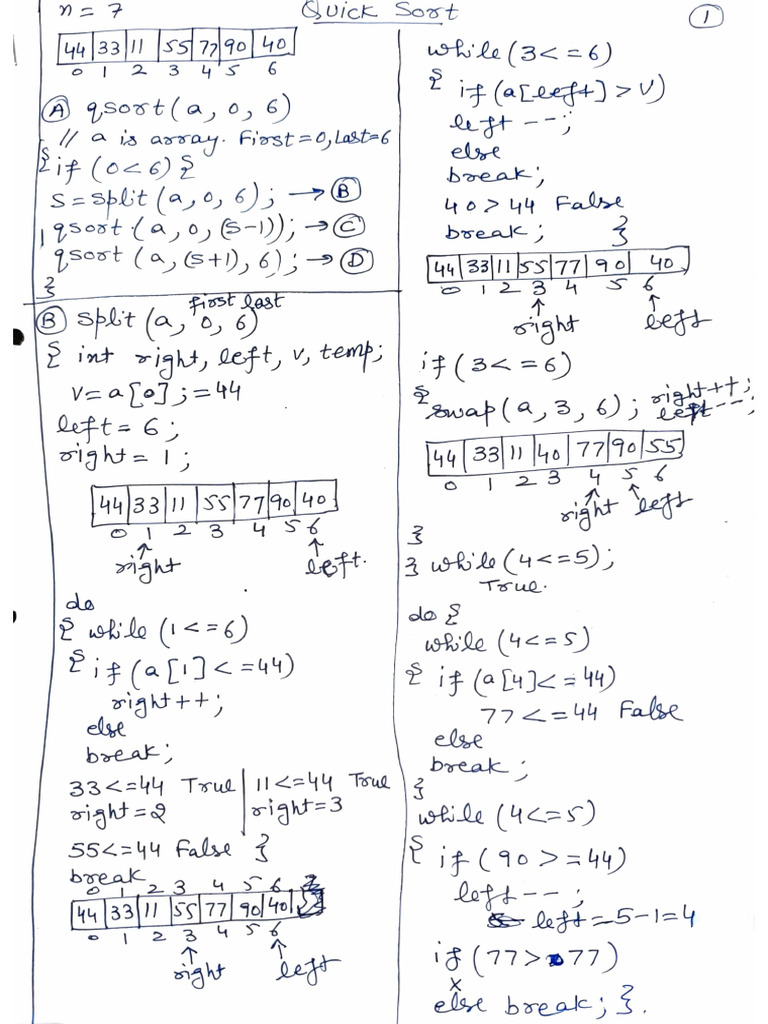 n = 7
Quick Sort
1
44 33 11 55 77 90 40
0 1 2 3 4 5 6
(A) qsort(a, 0, 6)
// a is array. First=0, Last=6
{if (0<6) {
S=split(a, 0, 6); → (B)
qsort(a, 0, (S-1)); → (C)
qsort(a, (S+1), 6); → (D)
}
first last
(B) split(a, 0, 6)
{ int right, left, v, temp;
v=a[0]; =44
left = 6;
right = 1;
44 33 11 55 77 90 40
0 1 2 3 4 5 6
↑ ↑
right left.
do
{ while (1<=6)
{ if (a[1]<=44)
right++;
else
break;
33<=44 True | 11<=44 True
right=2 | right=3
55<=44 False }
break
0 1 2 3 4 5 6
44 33 11 55 77 90 40
0 1 2 3 4 5 6
↑ ↑
right left
while (3<=6)
{ if (a[left]>v)
left --;
else
break;
40>44 False
break; }
44 33 11 55 77 90 40
0 1 2 3 4 5 6
↑ ↑
right left
if (3<=6)
{ swap(a, 3, 6); right++; left--;
44 33 11 40 77 90 55
0 1 2 3 4 5 6
↑ ↑
right left
}
} while (4<=5);
True.
do {
while (4<=5)
{ if (a[4]<=44)
77<=44 False
else
break;
}
while (4<=5)
{ if (90>=44)
left --;
left = 5-1=4
if (77>77)
x
else break; }.